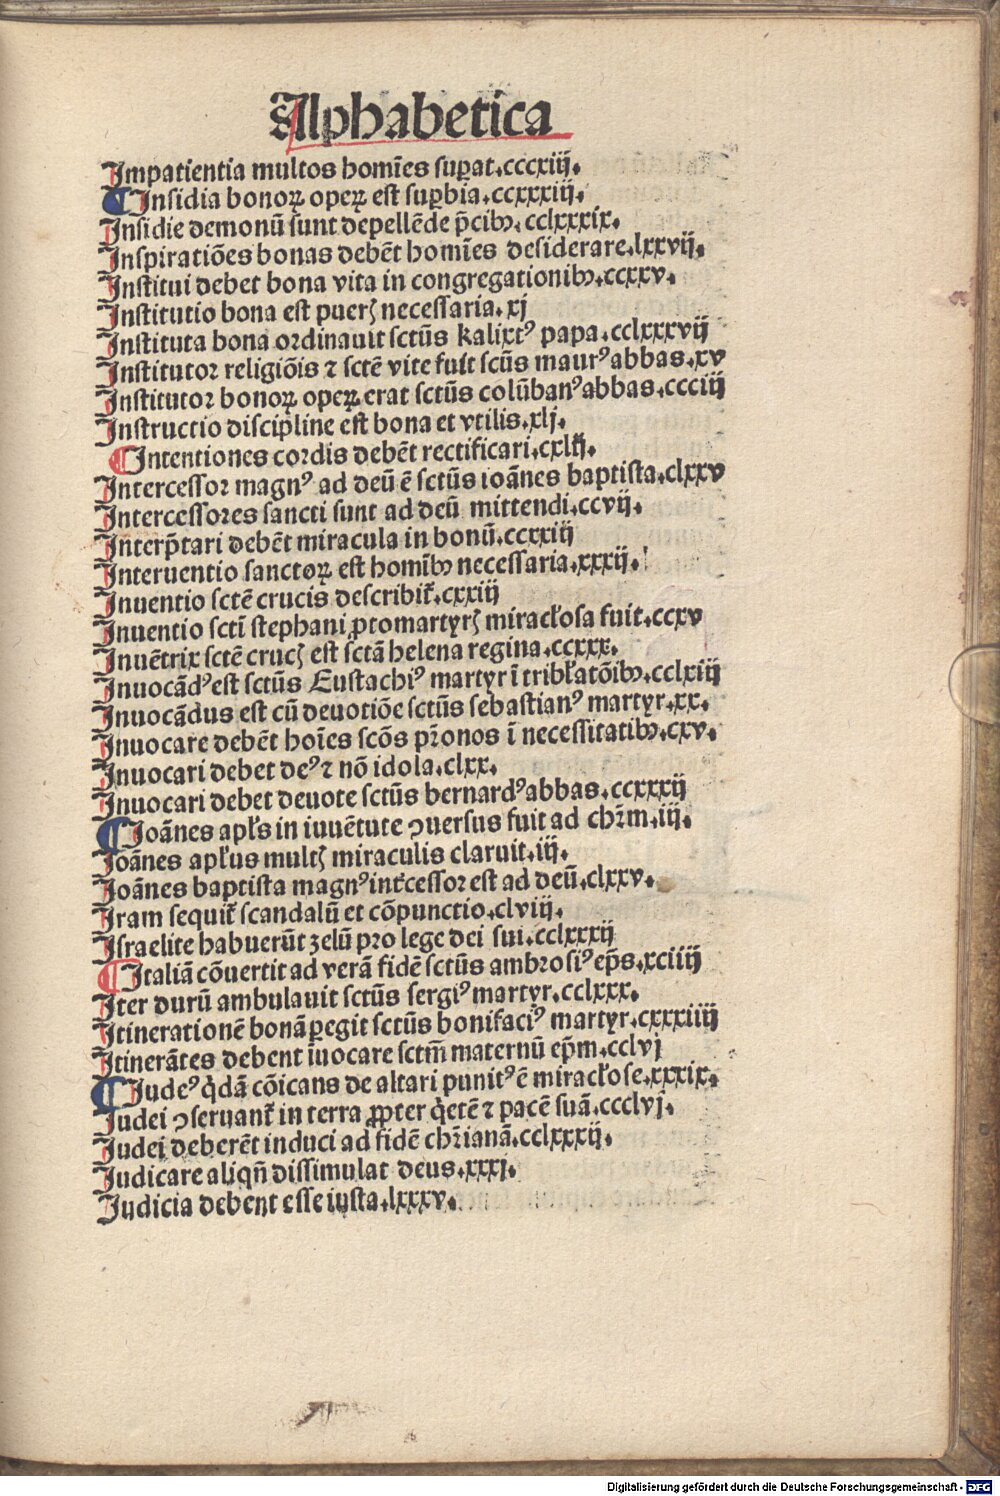 Alphabetica
Impatientia multos homīes suꝑat.cccxiij.
¶ Insidia bonoꝝ opeꝝ est suꝑbia.ccxxxiij.
Insidie demonū sunt depellēde p̄cibꝫ.cclxxxix.
Inspiratiōes bonas debēt homīes desiderare.lxxvij.
Institui debet bona vita in congregationibꝫ.ccxxv.
Institutio bona est puerꝭ necessaria.xj
Instituta bona ordinauit sctūs kalixtꝰ papa.cclxxxvij
Institutor religiōis ⁊ sctē vite fuit scūs maurꝰ abbas.xv
Institutor bonoꝝ opeꝝ erat sctūs colūbanꝰ abbas.ccciij
Instructio discipline est bona et vtilis.xlj.
¶ Intentiones cordis debēt rectificari.cxlij.
Intercessor magnꝰ ad deū ē sctūs ioānes baptista.clxxv
Intercessores sancti sunt ad deū mittendi.ccvij.
Interp̄tari debēt miracula in bonū.ccxxiij
Interuentio sanctoꝝ est homībꝫ necessaria.xxxij.
Inuentio sctē crucis describit̄.cxxiij
Inuentio sctī stephani ꝓtomartyrꝭ miracłosa fuit.ccxv
Inuētrix sctē crucꝭ est sctā helena regina.ccxxx.
Inuocādꝰ est sctūs Eustachiꝰ martyr ī tribłatōibꝫ.cclxiij
Inuocādus est cū deuotiōe sctūs sebastianꝰ martyr.xx.
Inuocare debēt hoīes scōs pr̄onos ī necessitatibꝫ.cxv.
Inuocari debet deꝰ ⁊ nō idola.clxx.
Inuocari debet deuote sctūs bernardꝰ abbas.ccxxxij
¶ Ioānes apłs in iuuētute ꝯuersus fuit ad chr̄m.iij.
Ioānes apłus multꝭ miraculis claruit.iij.
Ioānes baptista magnꝰ int̄cessor est ad deū.clxxv.
Iram sequit̄ scandalū et cōpunctio.clviij.
Israelite habuerūt zelū pro lege dei sui.cclxxxij
¶ Italiā cōuertit ad verā fidē sctūs ambrosiꝰ ep̄s.xciiij
Iter durū ambulauit sctūs sergiꝰ martyr.cclxxx.
Itinerationē bonā ꝑegit sctūs bonifaciꝰ martyr.cxxxiiij
Itinerātes debent īuocare sctm̄ maternū ep̄m.cclvj
¶ Iudeꝰ q̇dā cōicans de altari punitꝰ ē miracłose.xxxix.
Iudei ꝯseruant̄ in terra ꝓpter q̇etē ⁊ pacē suā.ccclvj.
Iudei deberēt induci ad fidē chr̄ianā.cclxxxij.
Iudicare aliqn̄ dissimulat deus.xxxj.
Iudicia debent esse iusta.lxxxv.
Digitalisierung gefördert durch die Deutsche Forschungsgemeinschaft - DFG